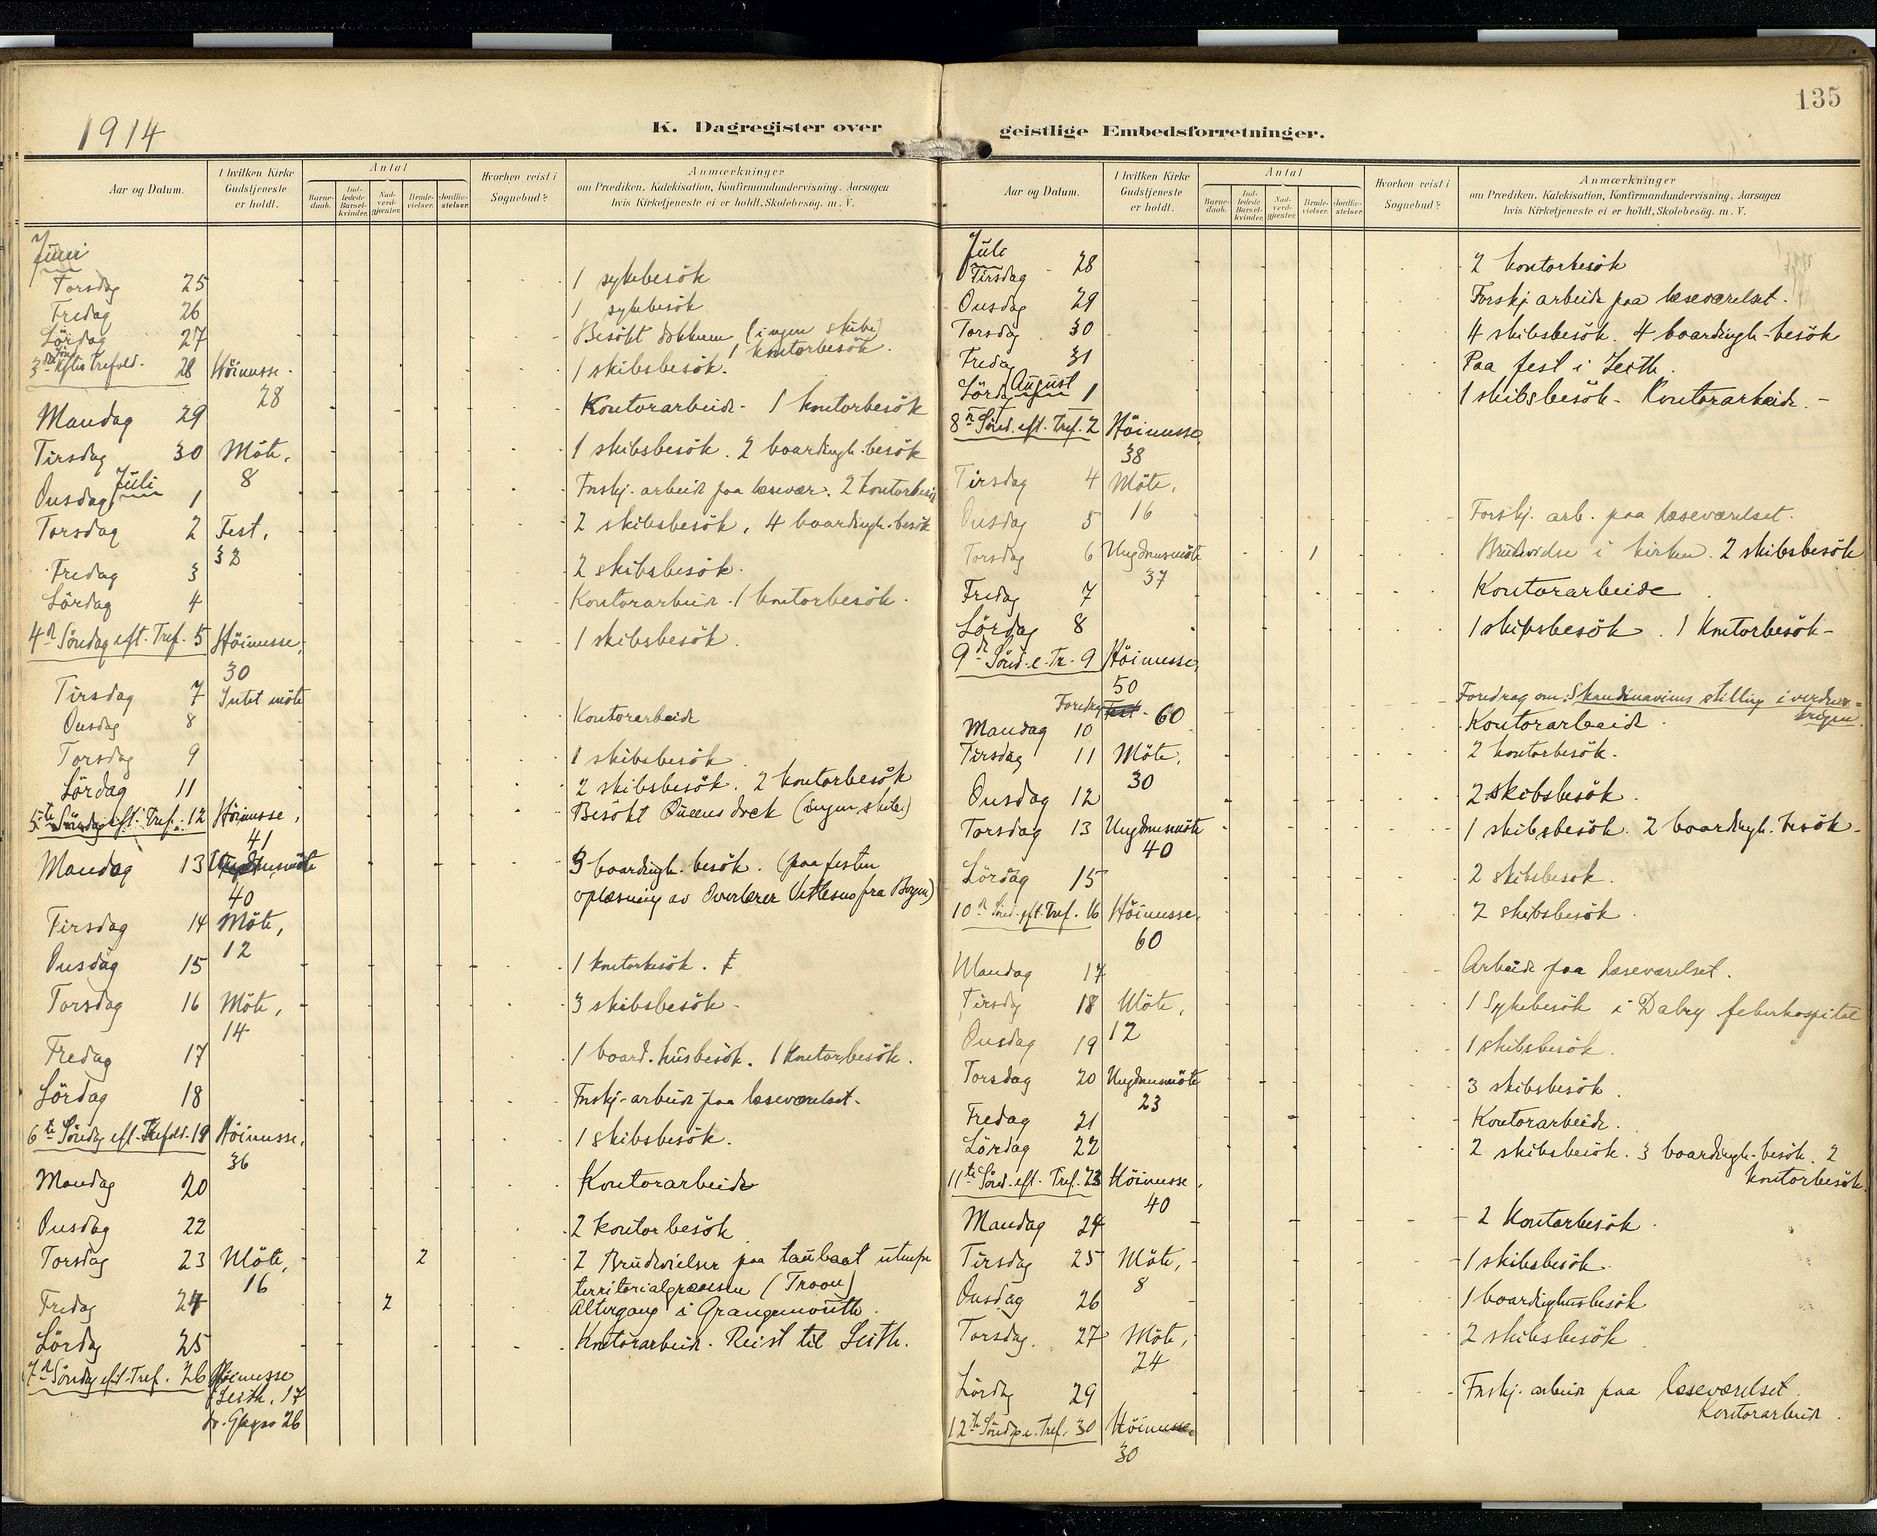 135
1914
K. Dagregister over geistlige Embedsforretninger.
Aar og Datum.
I hvilken Kirke Gudstjeneste er holdt.
Antal
Barne-daab.
Ind-ledede Barsel-kvinder.
Nad-verd-gjæster.
Brude-vielser.
Jordfæ-stelser.
Hvorhen reist i Sognebud?
Anmærkninger
om Prædiken, Katekisation, Konfirmandundervisning, Aarsagen
hvis Kirketjeneste ei er holdt, Skolebesøg. m. V.
Juni
Torsdag 25 1 sykebesök
Fredag 26 1 sykebesök
Lördag 27 Besökt dokken (ingen skibe) 1 kontorbesök.
3die Sön. efter Trefold. 28 Höimesse. 28 1 skibsbesök.
Mandag 29 Kontorarbeide - 1 kontorbesök
Tirsdag 30 Möte, 8 1 skibsbesök. 2 boardingh.besök
Juli
Onsdag 1 Forskj. arbeide paa læsevær. 2 kontorbesök
Torsdag 2 Fest, 32 2 skibsbesök, 4 boardingh.besök
Fredag 3 2 skibsbesök.
Lördag 4 Kontorarbeide. 1 kontorbesök.
4de Söndag eft. Tref. 5 Höimesse, 30 1 skibsbesök.
Tirsdag 7 Intet möte
Onsdag 8 Kontorarbeide
Torsdag 9 1 skibsbesök
Lördag 11 2 skibsbesök. 2 kontorbesök
5te Söndag eft. Tref. 12 Höimesse, 41 Besökt Queens dock (ingen skibe)
Mandag 13 Ungdomsmöte 40 3 boardingh. besök. (paa festen
oplæsning av Overlærer fra Bergen)
Tirsdag 14 Möte, 12
Onsdag 15 1 kontorbesök.
Torsdag 16 Möte, 14 3 skibsbesök -
Fredag 17 1 board. husbesök. 1 kontorbesök.
Lördag 18 Forskj. arbeide paa læseværelset.
6te Söndag eft. Trefold. 19 Höimesse, 36 1 skibsbesök.
Mandag 20 Kontorarbeide
Onsdag 22 2 kontorbesök
Torsdag 23 Möte, 16 2 2 Brudevielser paa taubaat utenfor
territorialgrænsen (Troon)
Fredag 24 2 Altergang i Grangemouth.
Lördag 25 Kontorarbeide. Reist til Leith.
7de Söndag eft. Tref. 26 Höimesse
i Leith, 17
do. Glasgow 26
Aar og Datum.
I hvilken Kirke Gudstjeneste er holdt.
Antal
Barne-daab.
Ind-ledede Barsel-kvinder.
Nad-verd-gjæster.
Brude-vielser.
Jordfæ-stelser.
Hvorhen reist i Sognebud?
Anmærkninger
om Prædiken, Katekisation, Konfirmandundervisning, Aarsagen
hvis Kirketjeneste ei er holdt, Skolebesøg. m. V.
Juli
Tirsdag 28 2 kontorbesök
Onsdag 29 Forskj. arbeide paa læseværelset.
Torsdag 30 4 skibsbesök. 4 boardingh.besök
Fredag 31 Paa fest i Leith.
August
Lördag 1 1 skibsbesök - Kontorarbeide. -
8de Sönd. eft. Tref. 2 Höimesse, 38
Tirsdag 4 Möte, 16
Onsdag 5 Forskj. arb. paa læseværelset.
Torsdag 6 Ungdomsmöte 37 1 Brudevielse i kirken. 2 skibsbesök
Fredag 7 Kontorarbeide.
Lördag 8 1 skibsbesök. 1 kontorbesök -
9de Sönd. e. Tr. 9 Höimesse, 50
Foredrag 60 Foredrag om: Skandinaviens stilling i verdens=
krigen.
Mandag 10 Kontorarbeide.
Tirsdag 11 Möte, 30 2 kontorbesök.
Onsdag 12 2 skibsbesök.
Torsdag 13 Ungdomsmöte 40 1 skibsbesök. 2 boardingh. besök.
Lördag 15 2 skibsbesök.
10de Sönd. eft. Tref. 16 Höimesse, 60 2 skibsbesök.
Mandag 17 Arbeide paa læseværelset.
Tirsdag 18 Möte, 12 1 Sykebesök i Dalry feberhospital
Onsdag 19 1 skibsbesök.
Torsdag 20 Ungdomsmöte 23 3 skibsbesök.
Fredag 21 Kontorarbeide.
Lördag 22 2 skibsbesök. 3 boardingh.besök. 2
kontorbesök.
11te Sönd. eft. Tref. 23 Höimesse, 40
Mandag 24 2 kontorbesök.
Tirsdag 25 Möte, 8 1 skibsbesök.
Onsdag 26 1 boardinghusbesök
Torsdag. 27 Möte, 24 2 skibsbesök.
Lördag 29 Forskj. arbeide paa læseværelset.
Kontorarbeide.
12te Söndag e. Tref. 30 Höimesse. 30